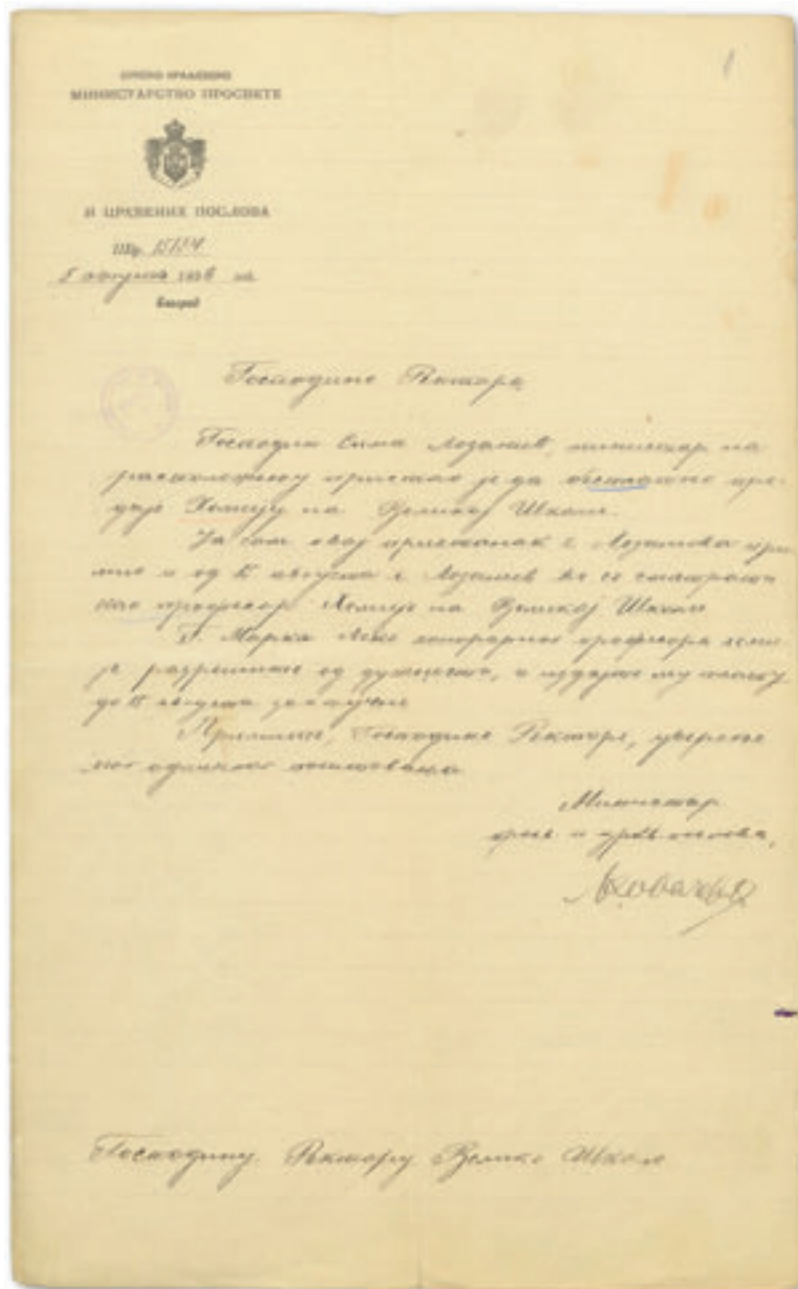 СРПСКО КРАЉЕВСКО
МИНИСТАРСТВО ПРОСВЕТЕ
И ЦРКВЕНИХ ПОСЛОВА
Београд
Господине Ректоре
Господин Сима Лозанић, министар на
расположењу пристао је да бесплатно пре-
даје Хемију на Великој Школи.
Ја сам овај пристанак г. Лозанића при-
мио и од августа г. Лозанић ће се сматрати
као професор Хемије на Великој Школи
Г. Марка Леко хонорарног професора хеми-
је разрешите од дужности, а издајте му плату
до августа закључно
Примите, Господине Ректоре, уверење
мог одличног поштовања
Министар
просв. и цркв. послова,
Господину Ректору Велике Школе